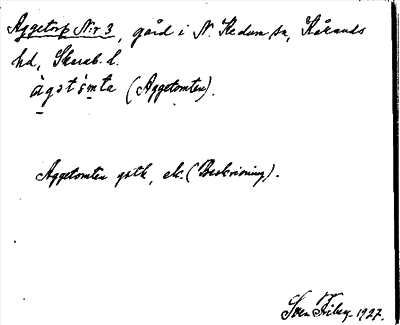 Aggetorp Nr 3, gård i N. Kedum sn, Kåkinds
hd, Skarab. l.
ågətòmta (Aggetomten).
Aggetomten gstk, ek. (Beskrivning).
Sven Friberg 1927.